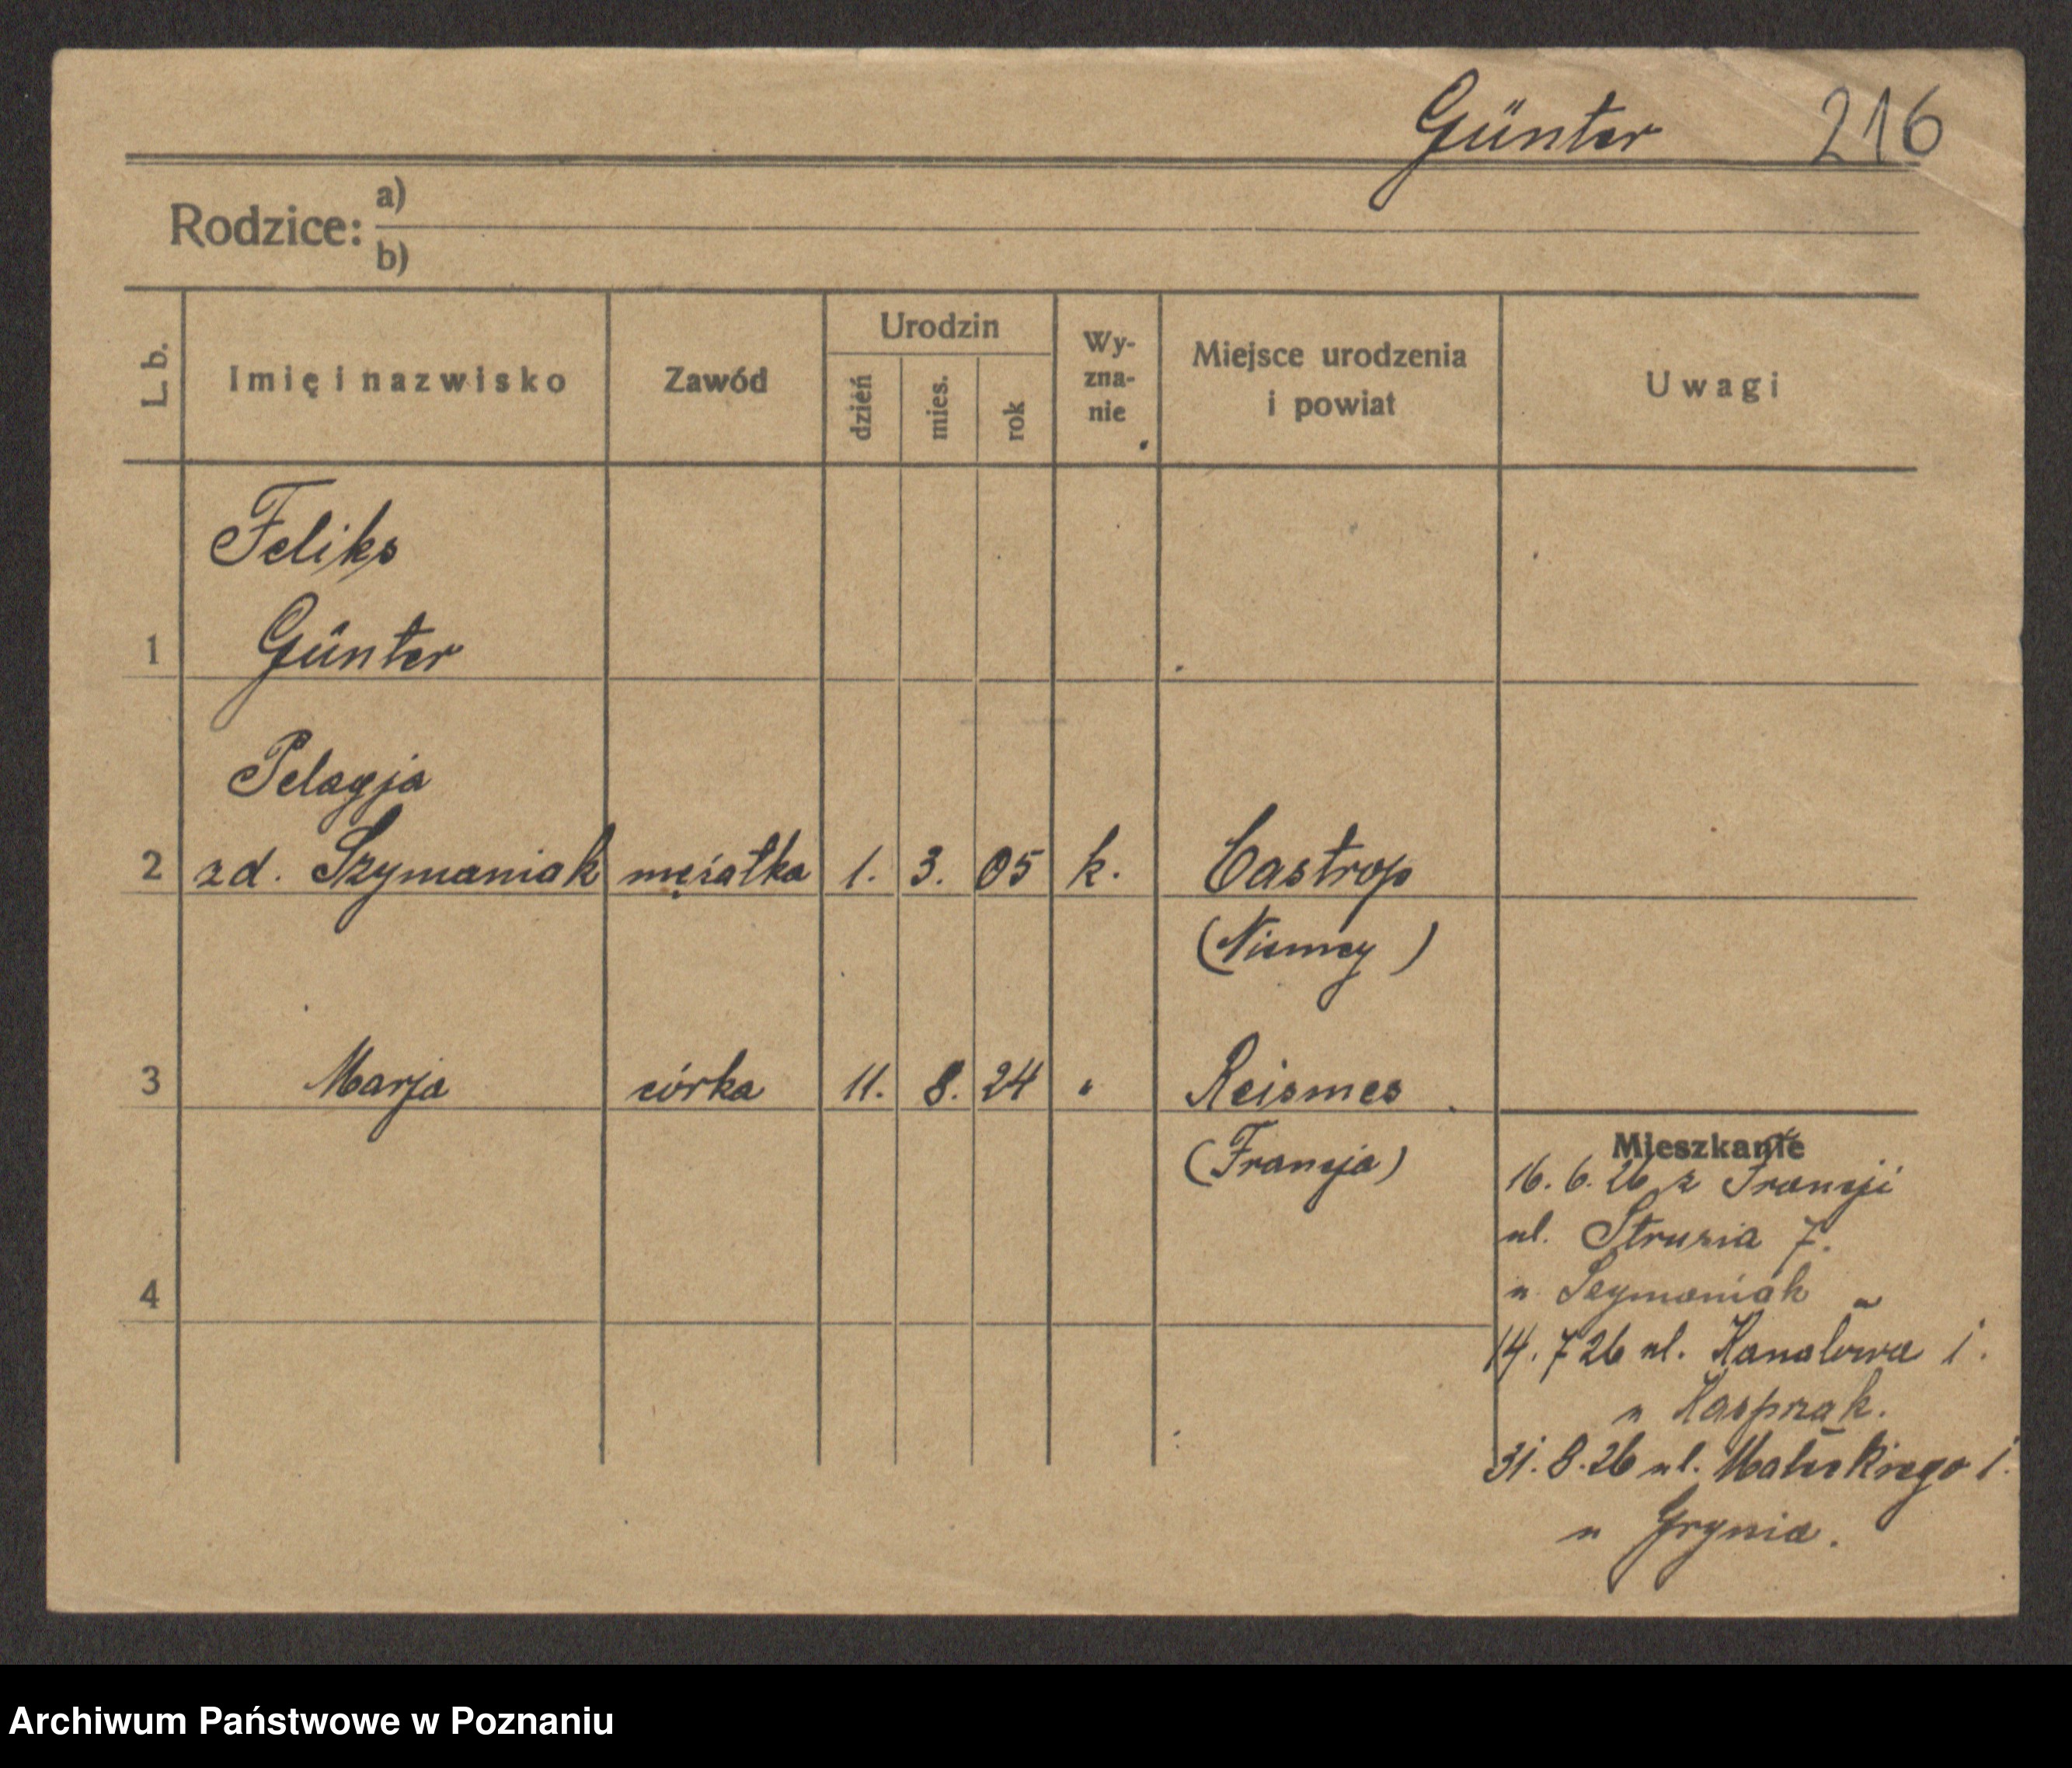 Günter 216
Rodzice: a)
b)
L. b. Imię i nazwisko Zawód Urodzin dzień mies. rok Wy-zna-nie Miejsce urodzenia i powiat Uwagi
Feliks
1 Günter
Pelagja
2 zd. Szymaniak mężatka 1. 3. 05 k. Castrop
(Niemcy)
3 Marja córka 11. 8. 24 " Reismes
(Francja)
Mieszkanie
16. 6. 26 z Francji
ul. Strusia 7.
4 u Szymaniak
14. 7 26 ul. Kanałowa 1.
u Kasprzak.
31. 8. 26 ul. Małeckiego 1.
u Grynia.
Archiwum Państwowe w Poznaniu